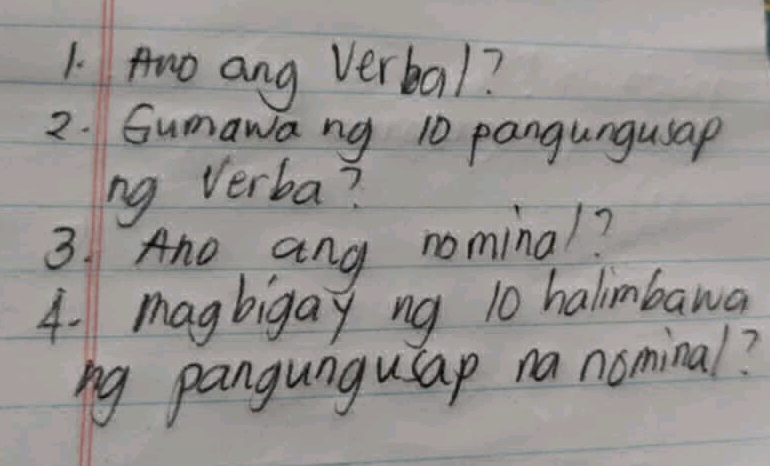 1. Ano ang Verbal?
2. Gumawa ng 10 pangungusap
ng Verba?
3. Ano ang nominal?
4. magbigay ng 10 halimbawa
ng pangungusap na nominal?